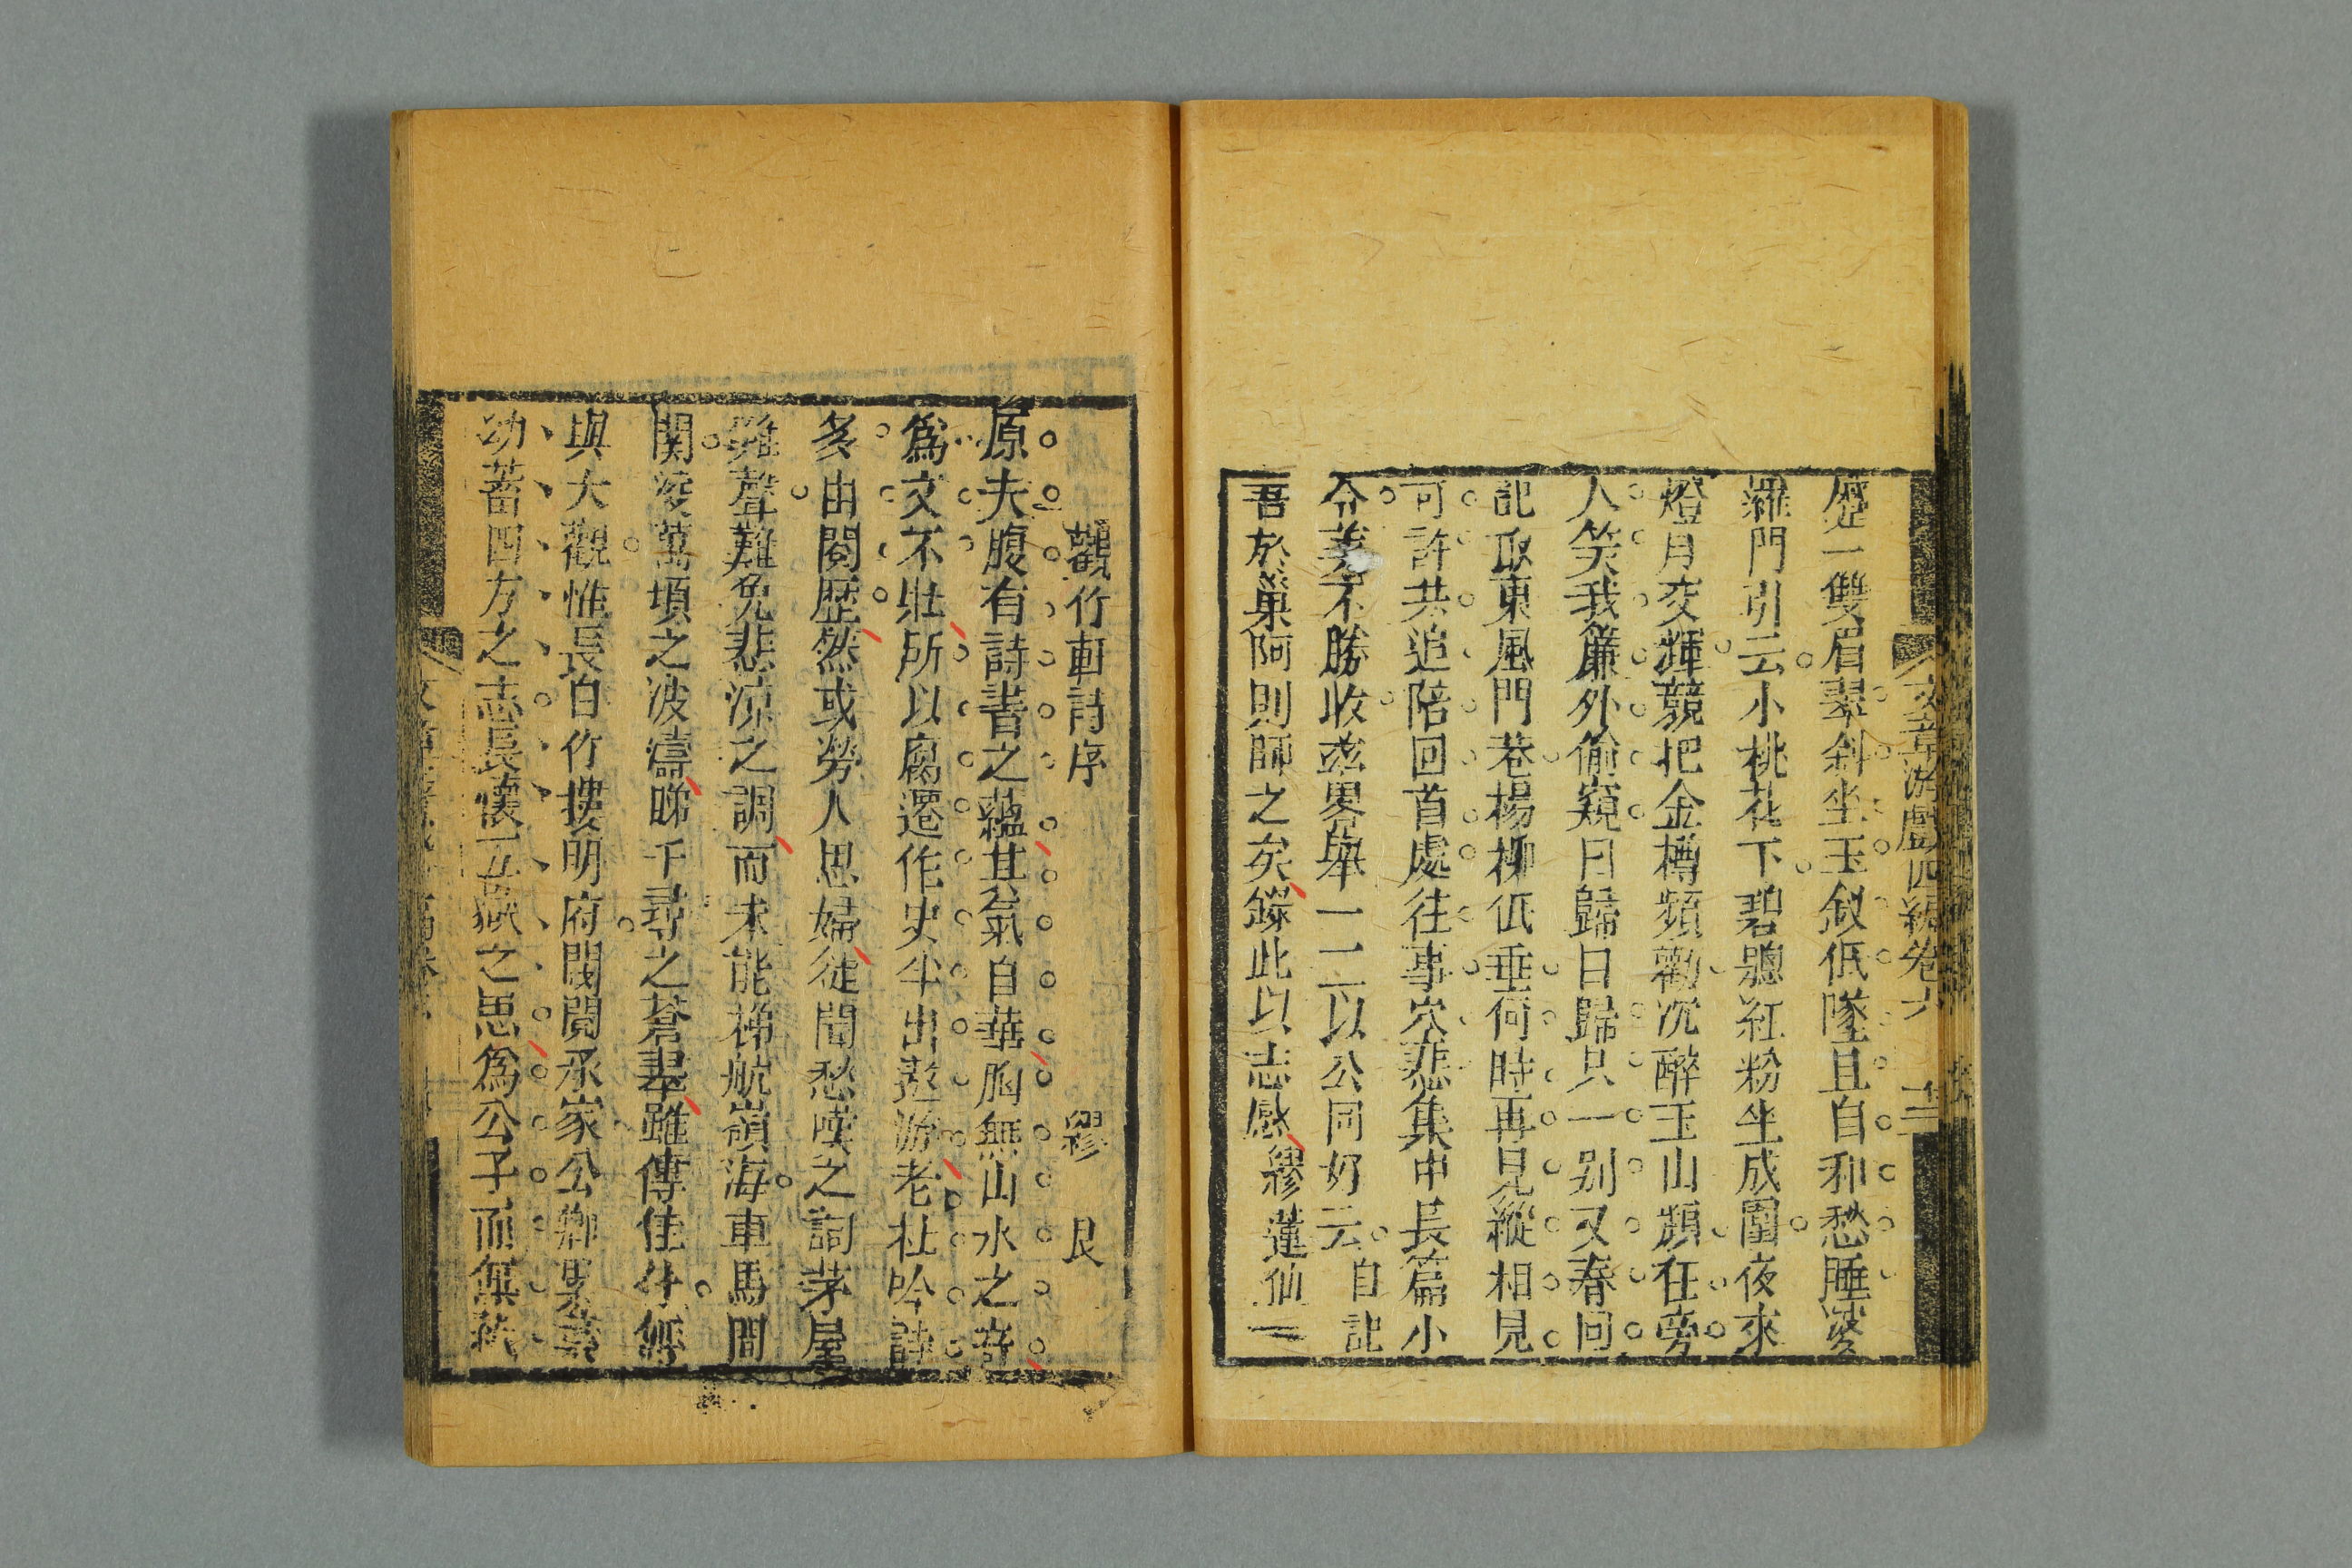 文章游戲四編卷六
歷一雙眉翠斜坐玉釵低墜且自和愁睡婆
羅門引云小桃花下碧聰紅粉坐成圍夜來
燈月交輝競把金樽頻勸沉醉玉山頹在旁
人笑我簾外偷窺曰歸曰歸只一别又春回
記取東風門巷楊柳低垂何時再見縱相見
可許共追陪回首處往事穴悲集中長篇小
令美不勝收玆畧舉一二以公同好云自記
吾於巢阿則師之矣錄此以志感繆蓮仙
觀竹軒詩序 繆艮
原夫腹有詩書之蘊其氣自華胸無山水之奇
爲文不壯所以腐遷作史半出遨游老杜吟詩
多由閱歷然或勞人思婦徒聞愁嘆之詞茅屋
雞聲難免悲涼之調而未能梯航嶺海車馬間
関淩萬頃之波濤睇千尋之蒼翠雖傳佳什無
與大觀惟長白竹摟明府閥閱承家公卿
幼蓄四方之志長懷五嶽之思爲公子而無